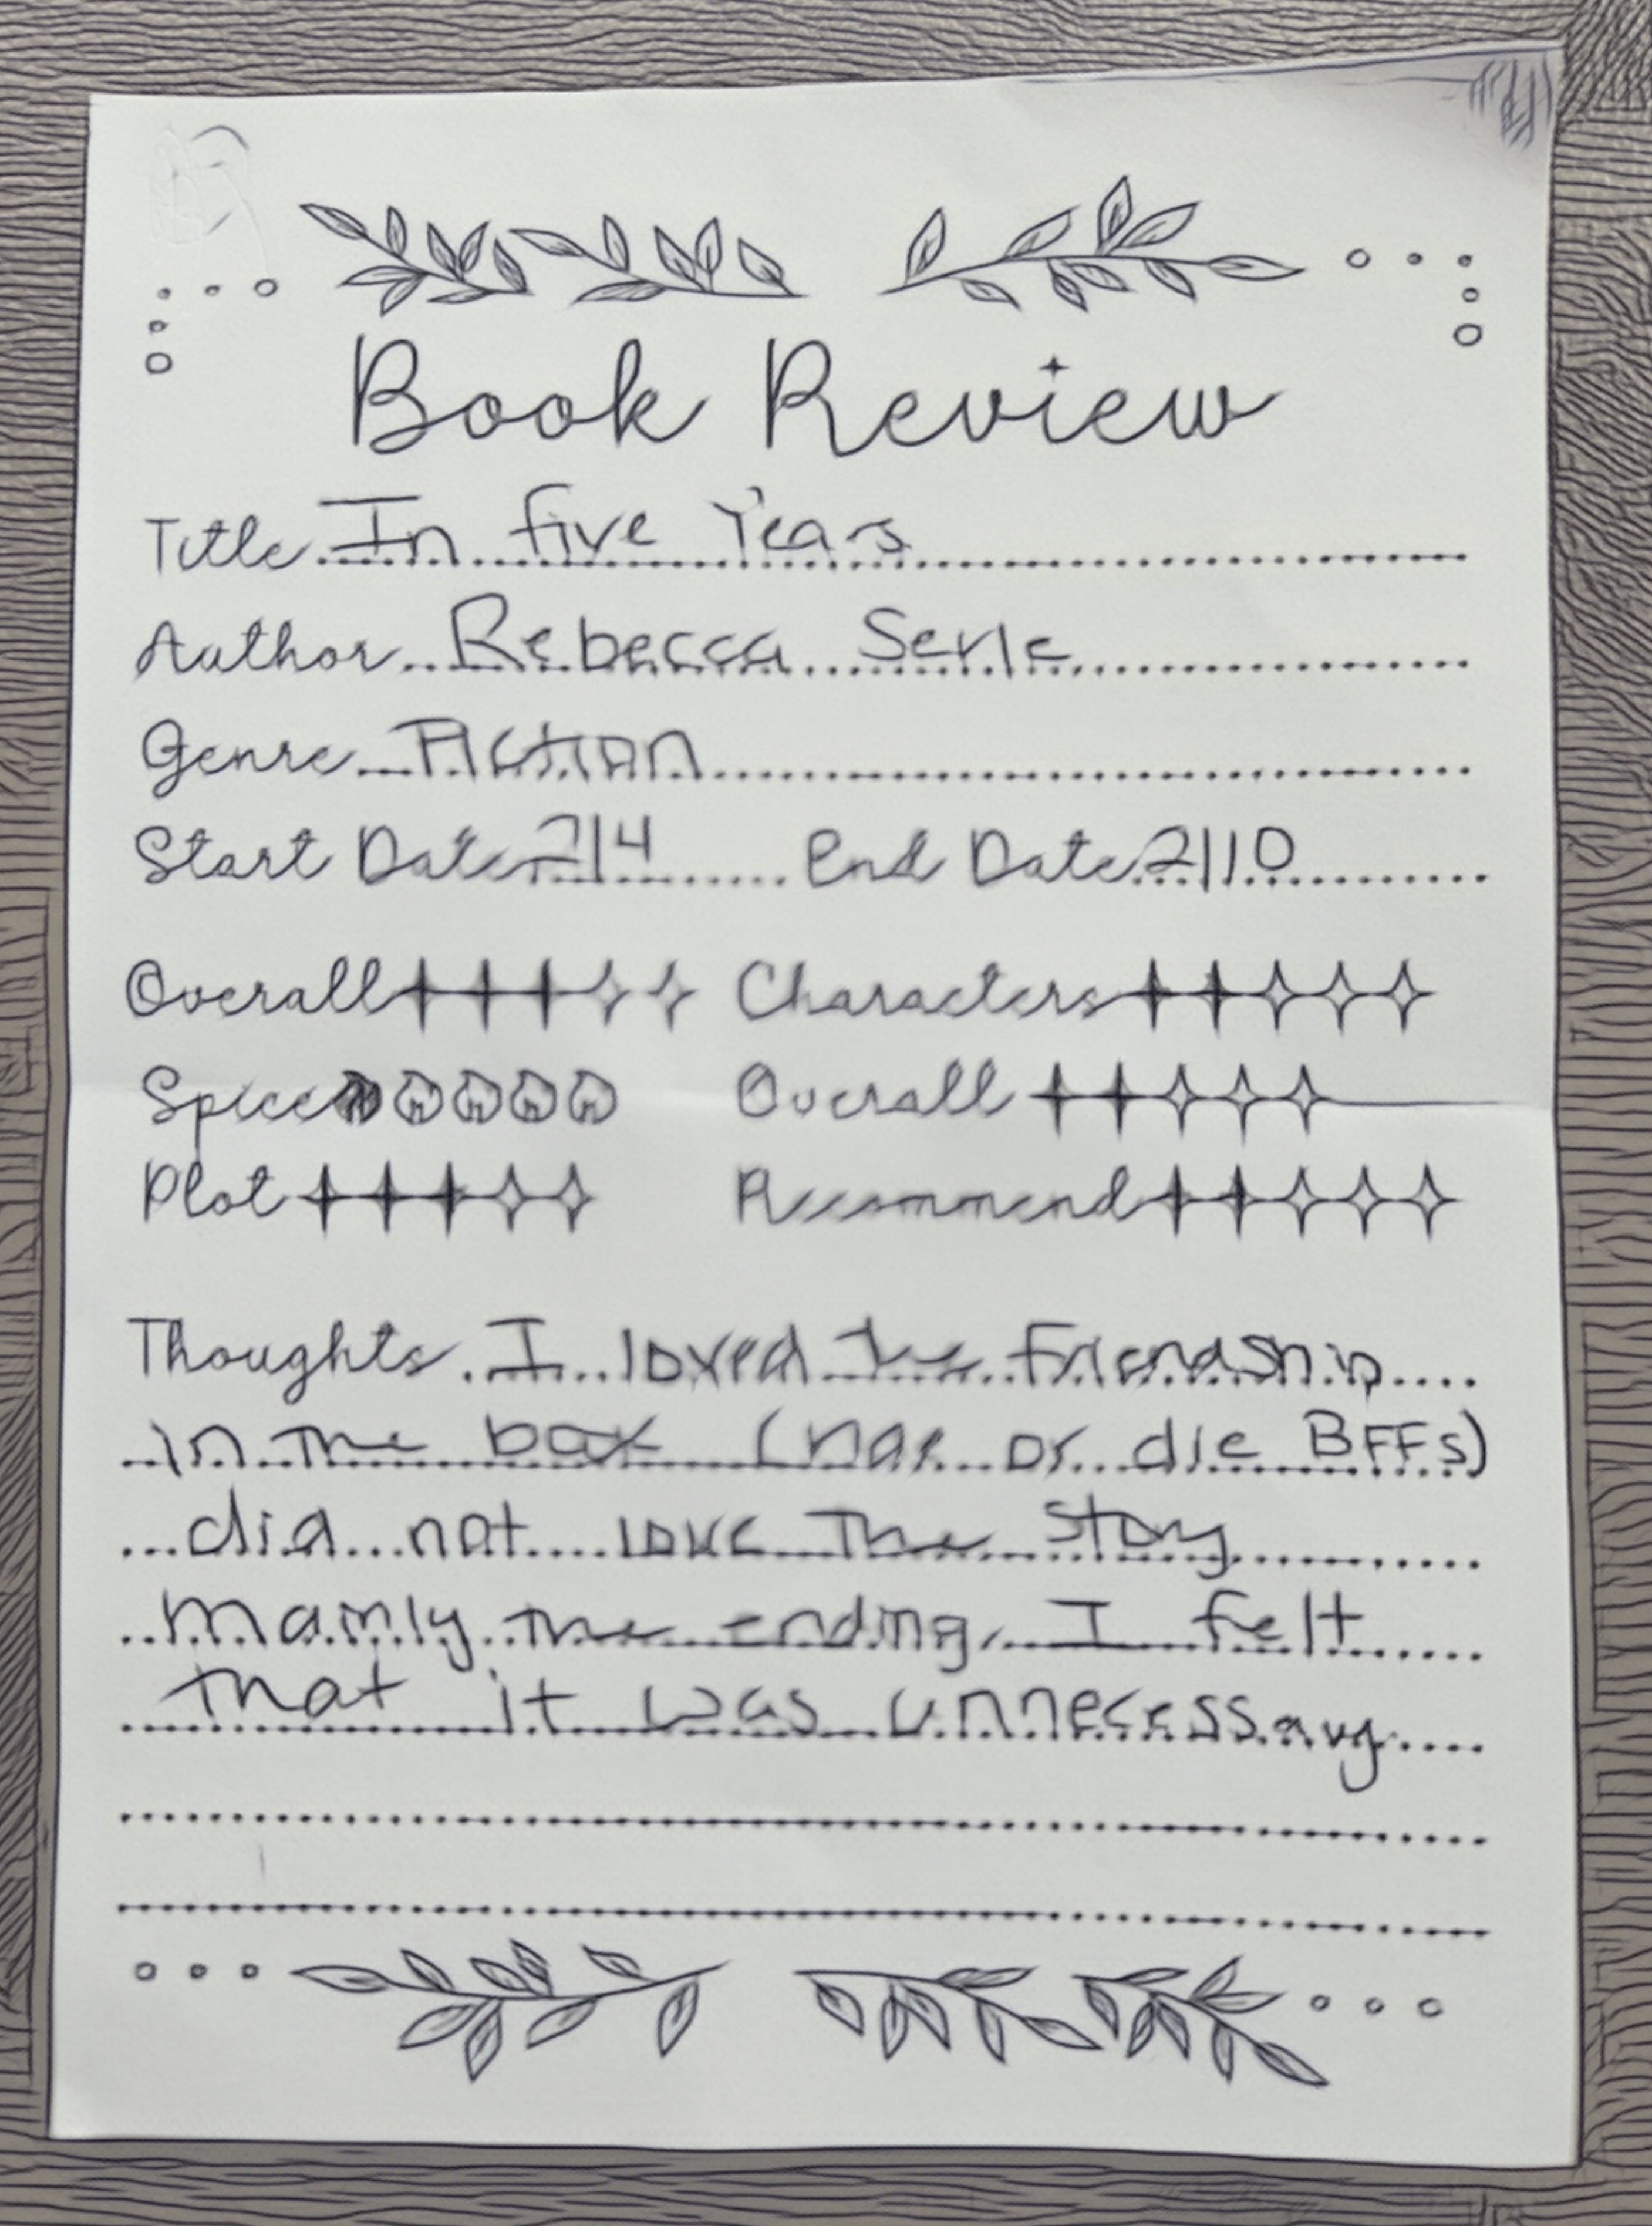 Book Review
Title In five Years
Author Rebecca Serle
Genre Fiction
Start Date 2/4 End Date 2/10
Overall Characters
Spice Overall
Plot Recommend
Thoughts I loved the friendship
in the (ride or die BFFs)
did not love the story
mainly the ending, I felt
that it was unnecessary